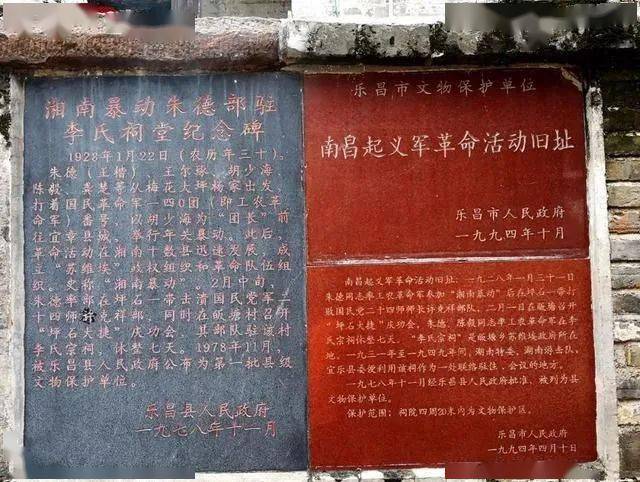 湘南暴动朱德部驻
李氏祠堂纪念碑
1928年1月22日（农历年三十）。
朱德（王楷）、王尔琢、胡少海、
陈毅、龚楚等从梅花大坪杨家出发，
打着国民革命军一四0团（即工农革
命军）番号，以胡少海为“团长”前
往宜章县城，举行年关暴动。此后，
革命活动在湘南十数县迅速发展，成
立“苏维埃”政权组织和革命队伍组
织。史称“湘南暴动”。2月中旬，
朱德率部在坪石一带击溃国民党军二
十四师许克祥部，同时在皈塘村召开
“坪石大捷”庆功会，其部队驻该村
李氏宗祠，休整七天。1978年11月，
被乐昌县人民政府公布为第一批县级
文物保护单位。
乐昌县人民政府
一九七八年十一月
乐昌市文物保护单位
南昌起义军革命活动旧址
乐昌市人民政府
一九九四年十月
南昌起义军革命活动旧址：一九二八年一月三十一日
朱德同志率工农革命军参加“湘南暴动”后在坪石一带打
败国民党二十四师师长许克祥部队，二月一日在皈塘召开
“坪石大捷”庆功会，朱德、陈毅同志率工农革命军在李
氏宗祠休整七天。“李氏宗祠”是皈塘乡苏维埃政府所在
地。一九三一年至一九四九年间，湖南特委，湖南游击队，
宜乐县委便利用该祠作为一处联络驻往，会议的地方。
一九七八年十一月经乐昌县人民政府批准，被列为县
文物保护单位。
保护范围：祠院四周30米内为文物保护区。
乐昌市人民政府
一九九四年四月十日